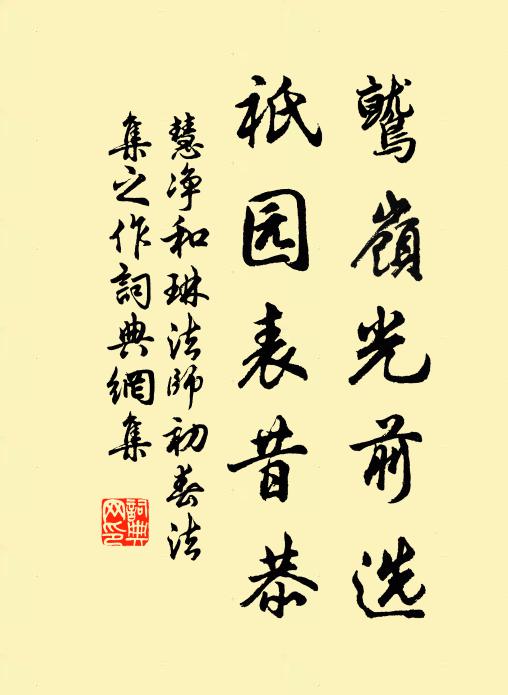 鹫嶺光前选
祇园表昔恭
慧净和琳法師初春法
集之作詞典網集
詞典网印